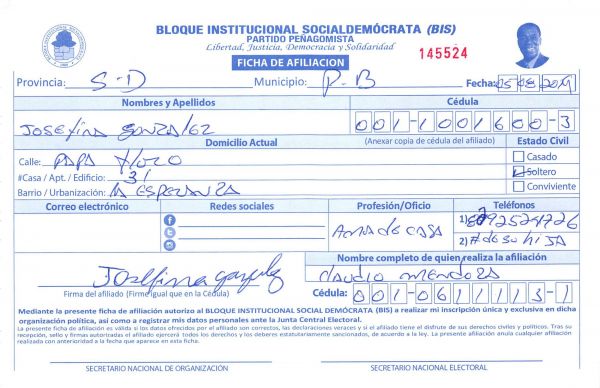 BLOQUE INSTITUCIONAL SOCIALDEMÓCRATA (BIS)
PARTIDO PEÑAGOMISTA
Libertad, Justicia, Democracia y Solidaridad
FICHA DE AFILIACION
145524
Provincia: S-D Municipio: P-B Fecha:
Nombres y Apellidos Cédula
Josefina Gonzalez 001-1001600-3
Domicilio Actual (Anexar copia de cédula del afiliado) Estado Civil
Calle: PAPA
#Casa / Apt. / Edificio: 31
Barrio / Urbanización: LA ESPERANZA
Casado
Soltero
Conviviente
Correo electrónico Redes sociales Profesión/Oficio Teléfonos
AMA de CASA
1)
2) # de su hiJA
Nombre completo de quien realiza la afiliación
Claudio Mendoza
Josefina Gonzalez
Firma del afiliado (Firme igual que en la Cédula)
Cédula: 001-0611113-1
Mediante la presente ficha de afiliación autorizo al BLOQUE INSTITUCIONAL SOCIAL DEMÓCRATA (BIS) a realizar mi inscripción única y exclusiva en dicha
organización política, así como a registrar mis datos personales ante la Junta Central Electoral.
La presente ficha de afiliación es válida si los datos ofrecidos por el afiliado son correctos, las declaraciones veraces y si el afiliado tiene el disfrute de sus derechos civiles y políticos. Tras su
recepción, sello y firmas autorizadas el afiliado ejercerá todos los derechos y los deberes estatutariamente sancionados, de acuerdo a la ley. La presente afiliación anula cualquier afiliación
realizada con anterioridad a la fecha que aparece en esta ficha.
SECRETARIO NACIONAL DE ORGANIZACIÓN SECRETARIO NACIONAL ELECTORAL